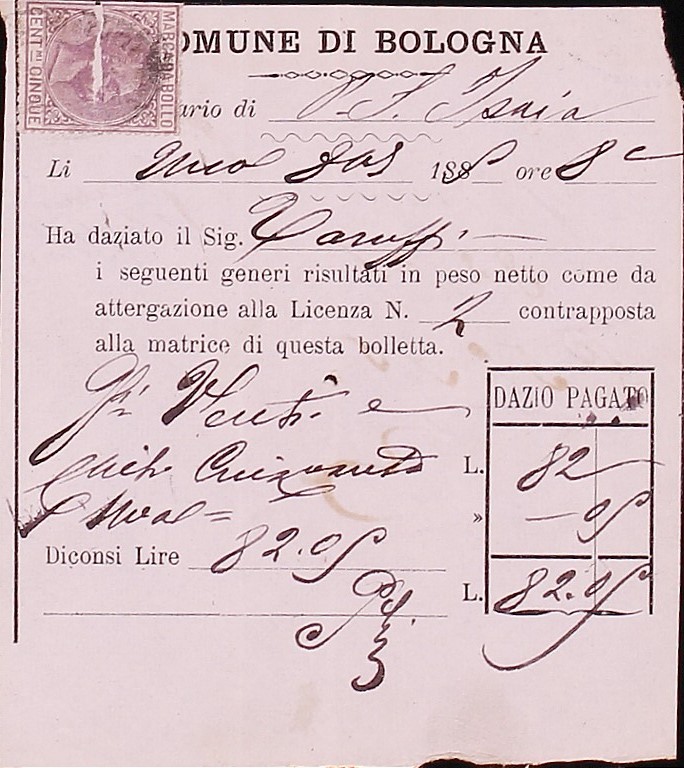 MARCA DA BOLLO
CENT.MI CINQUE
OMUNE DI BOLOGNA
ario di P. S. Isaia
Li 188 ore 8
Ha daziato il Sig.
i seguenti generi risultati in peso netto come da
attergazione alla Licenza N. 2 contrapposta
alla matrice di questa bolletta.
Venti e
DAZIO PAGATO
L. 82
» — 05
Diconsi Lire 82.05
L. 82.05